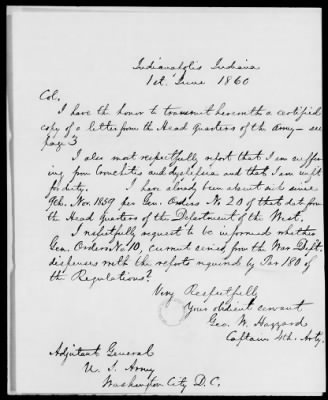 Indianapolis Indiana
1st. June 1860
Col.
I have the honor to transmit herewith a certified
copy of a letter from the Head quarters of the Army – see
page 3
I also most respectfully report that I am suffer
ing from bronchitis and dyslepsia and that I am unfit
for duty. I have already been absent sick since
9th. Nov. 1859 per Gen. Orders No 20 of that date from
the Head quarters of the Department of the West.
I respectfully request to be informed whether
Gen. Orders No 10, current series from the War Dept.
dispenses with the reports required by Par 180 of
the Regulations?
Very Respectfully
Your obedient servant
Geo. W. Hazzard
Captain 4th. Arty.
Adjutant General
U. S. Army
Washington City D. C.